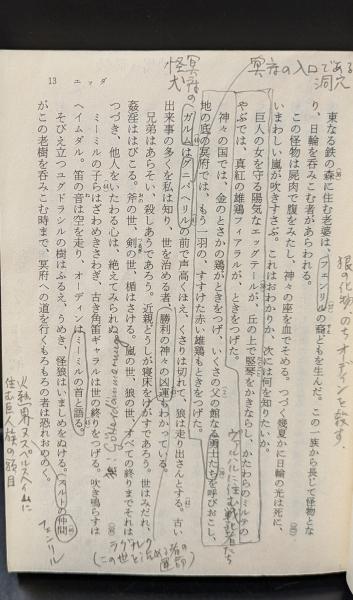 13　エッダ
東なる鉄の森に住む老婆は、フェンリルの裔どもを生んだ。この一族から長じて怪物とな
り、日輪を呑みこむ者があらわれる。
この怪物は屍肉で腹をみたし、神々の座を血でそめる。つづく幾夏かに日輪の光は死に、
いまわしい嵐が吹きすさぶ。これはおわかりか、次には何を知りたいか。
巨人の女を守る陽気なエッグテールが、丘の上で竪琴をかきならし、かたわらのミルテの
やぶでは、真紅の雄鶏フィアラルが、ときをつげた。
神々の国では、金のとさかの鶏がときをつげ、いくさの父の館なる勇士たちを呼びおこし、
地の底の冥府では、もう一羽の、すすけた赤い雄鶏もときをつげた。
ガルムはグニパヘリルの前で声高くほえ、くさりは切れて、狼は走り出さんとする。古い
出来事の多くを私は知り、世を治める者、勝利の神々の凶運もわかっている。
兄弟はあらそい、殺しあうであろう。近親どうしが寝床をけがすであろう。世はみだれ、
姦淫ははびこる。斧の世、剣の世、楯はさける。嵐の世、狼の世、すべての終りまでそれは
つづき、他人をいたわる心は、絶えてみられぬ
ミーミルの子らはさわめきさわぎ、古き角笛ギャラルは世の終りをつげる。吹き鳴らすは
ヘイムダル。笛の音は空を走り、オーディンはミーミルの首と語る。
そびえ立つユグドラシルの樹はふるえ、うめき、怪狼はいましめをぬける。スルトの仲間
がこの老樹を呑みこむ時まで、冥府への道を行くものらの者は恐れおののく。
冥府の入口である
洞穴
冥府の
怪犬
狼の化物、のちオーディンを殺す
ヴァルハルに住む戦死者たち
ラグナレク
フェンリル
火焔界ムスペルスヘイムに
住む巨人族の頭目